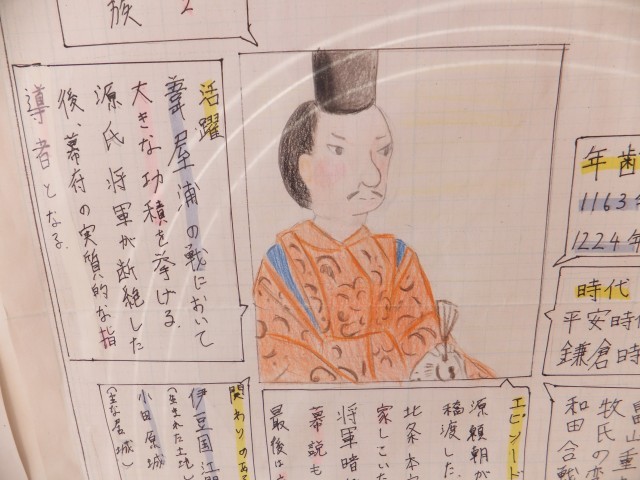 族
2
活躍
葦屋浦の戦において
大きな功積を挙げる。
源氏将軍が断絶した
後、幕府の実質的な指
導者となる。
年歯
1163年
1224年
時代
平安時代
鎌倉時
関わりのある
伊豆国江間
(生まれた土地)
小田原城
(主な居城)
エピソード
源頼朝が
稲渡した。
北条本
家していた
将軍暗
幕説も
最後は
畠山重
牧氏の変
和田合戦